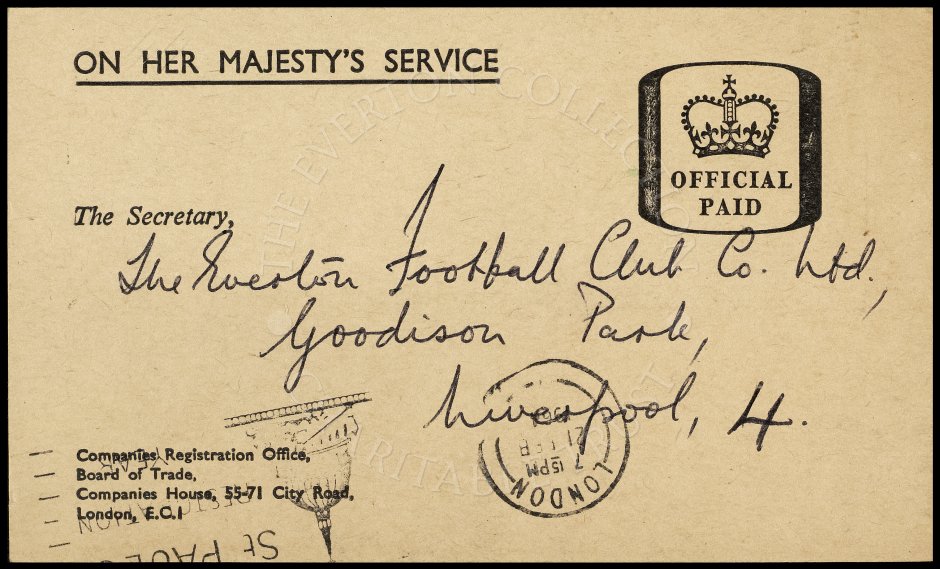 ON HER MAJESTY'S SERVICE
OFFICIAL
PAID
The Secretary,
The Everton Football Club Co. Ltd.,
Goodison Park,
Liverpool, 4.
Companies Registration Office,
Board of Trade,
Companies House, 55-71 City Road,
London, E.C.1
LONDON
7 15PM
21 FEB
ST PAUL'S
THE EVERTON COLLECTION
CHARITABLE TRUST